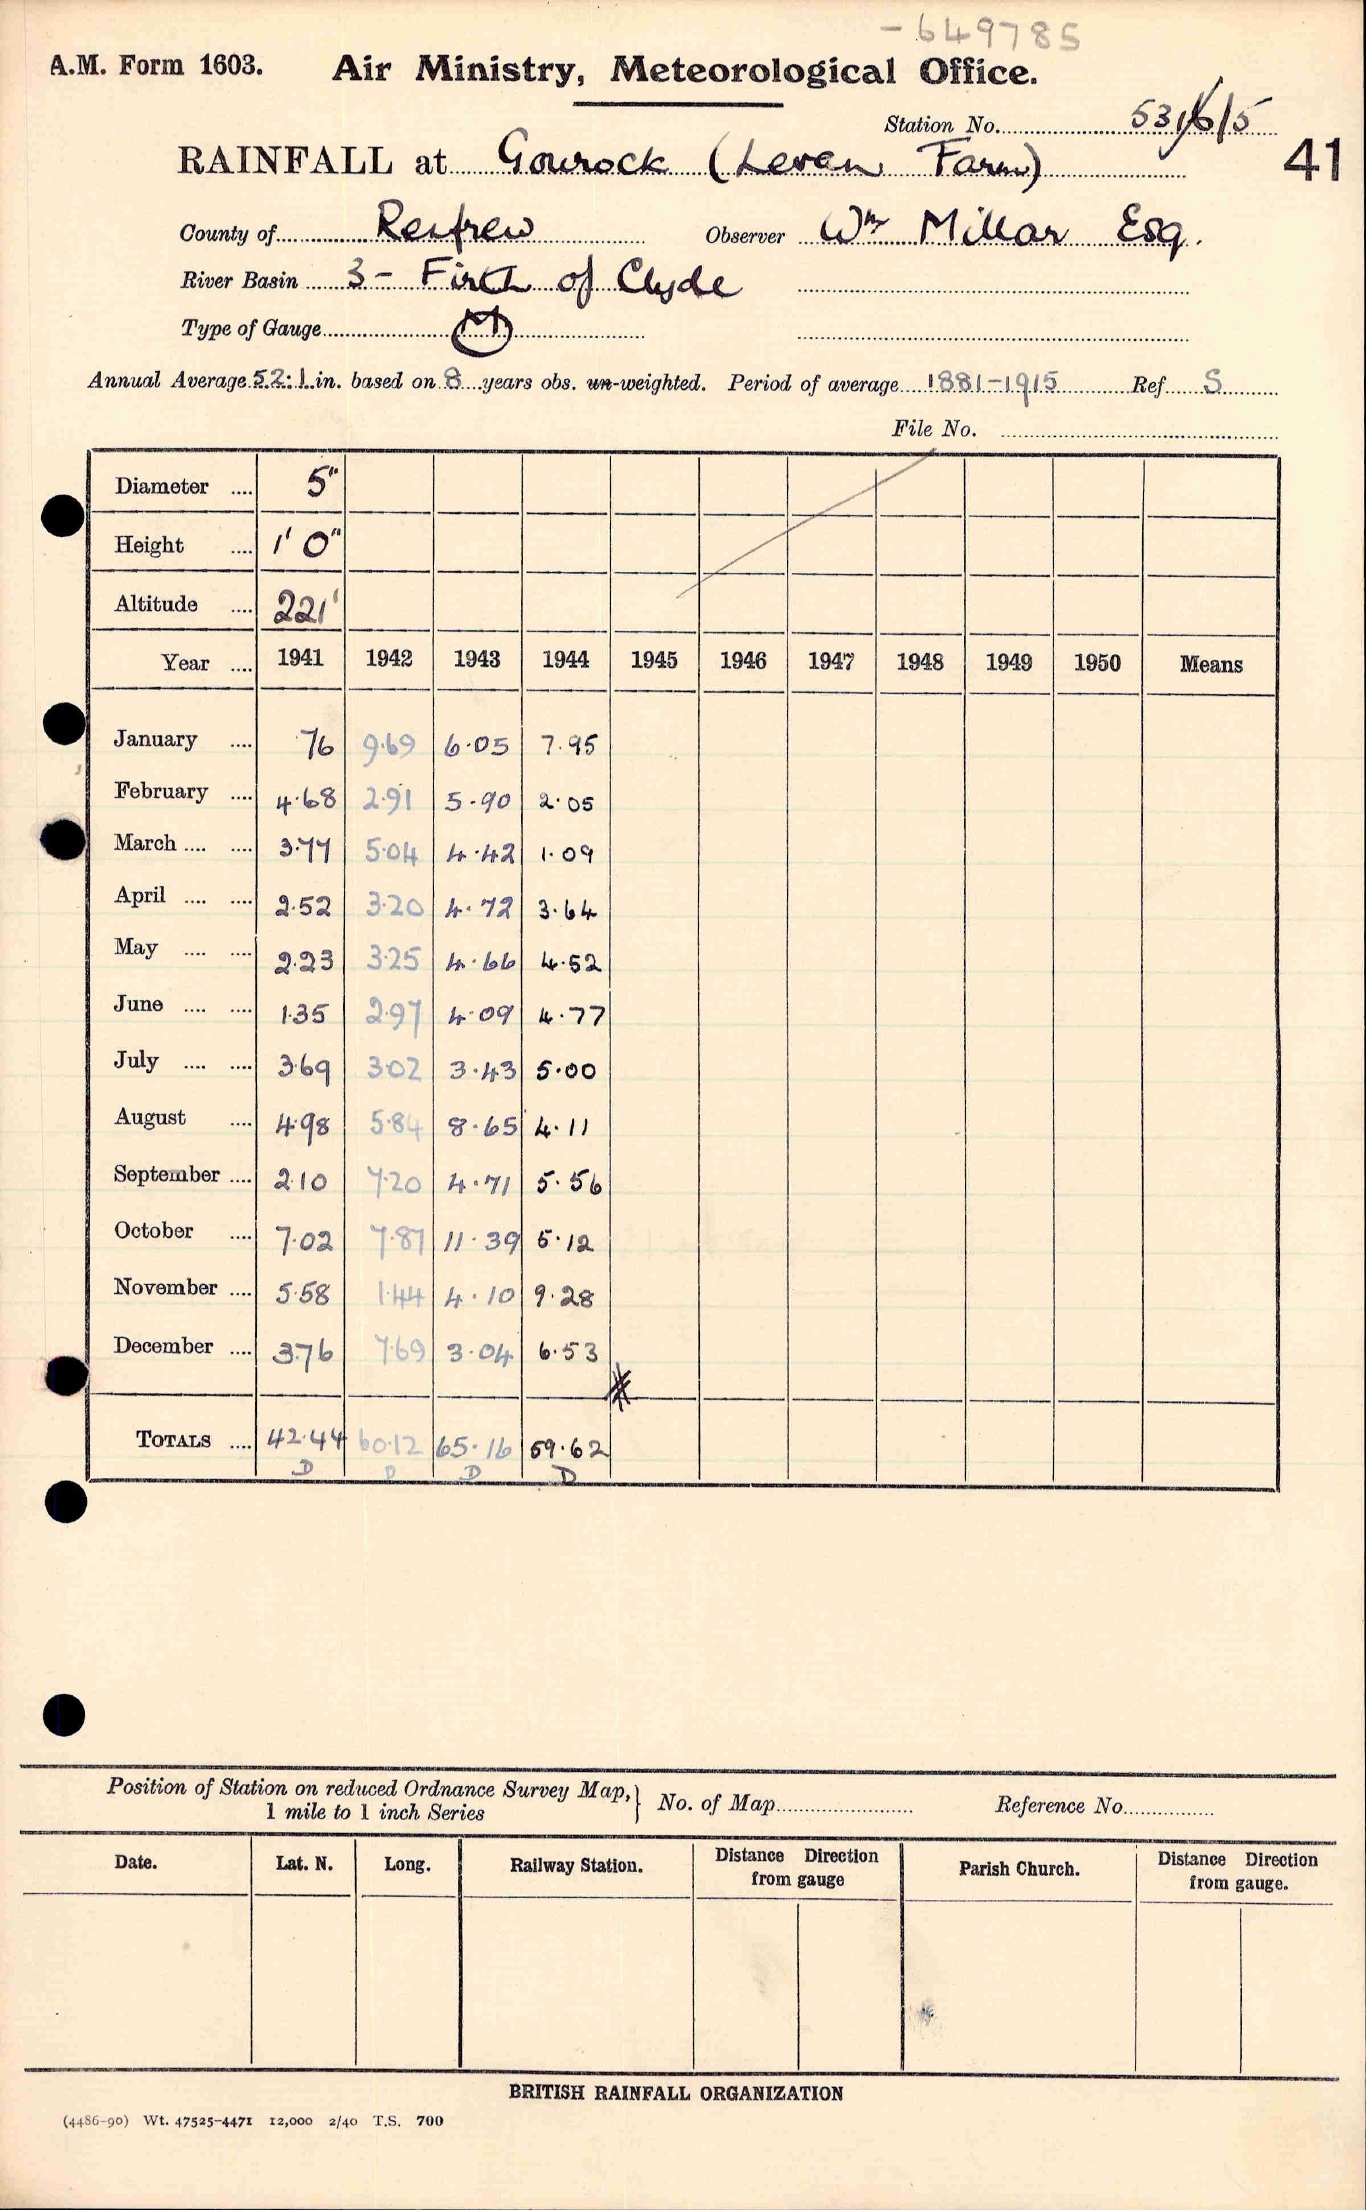 -649785
A.M. Form 1603. Air Ministry, Meteorological Office.
Station No. 531/6/5
RAINFALL at Gourock (Leven Farm) 41
County of Renfrew Observer Wm Millar Esq.
River Basin 3- Firth of Clyde
Type of Gauge M
Annual Average 52.1 in. based on 8 years obs. un-weighted. Period of average 1881-1915 Ref S
File No.
Diameter .... 5"
Height .... 1' 0"
Altitude .... 221'
Year .... 1941 1942 1943 1944 1945 1946 1947 1948 1949 1950 Means
January .... .76 9.69 6.05 7.95
February .... 4.68 2.91 5.90 2.05
March .... .... 3.77 5.04 4.42 1.09
April .... .... 2.52 3.20 4.72 3.64
May .... .... 2.23 3.25 4.66 4.52
June .... .... 1.35 2.97 4.09 4.77
July .... .... 3.69 3.02 3.43 5.00
August .... 4.98 5.84 8.65 4.11
September .... 2.10 7.20 4.71 5.56
October .... 7.02 7.87 11.39 5.12
November .... 5.58 1.44 4.10 9.28
December .... 3.76 7.69 3.04 6.53
TOTALS .... 42.44 60.12 65.16 59.62
D D D D
Position of Station on reduced Ordnance Survey Map, 1 mile to 1 inch Series } No. of Map Reference No.
Date. Lat. N. Long. Railway Station. Distance Direction from gauge Parish Church. Distance Direction from gauge.
BRITISH RAINFALL ORGANIZATION
(4486-90) Wt. 47525-4471 12,000 2/40 T.S. 700